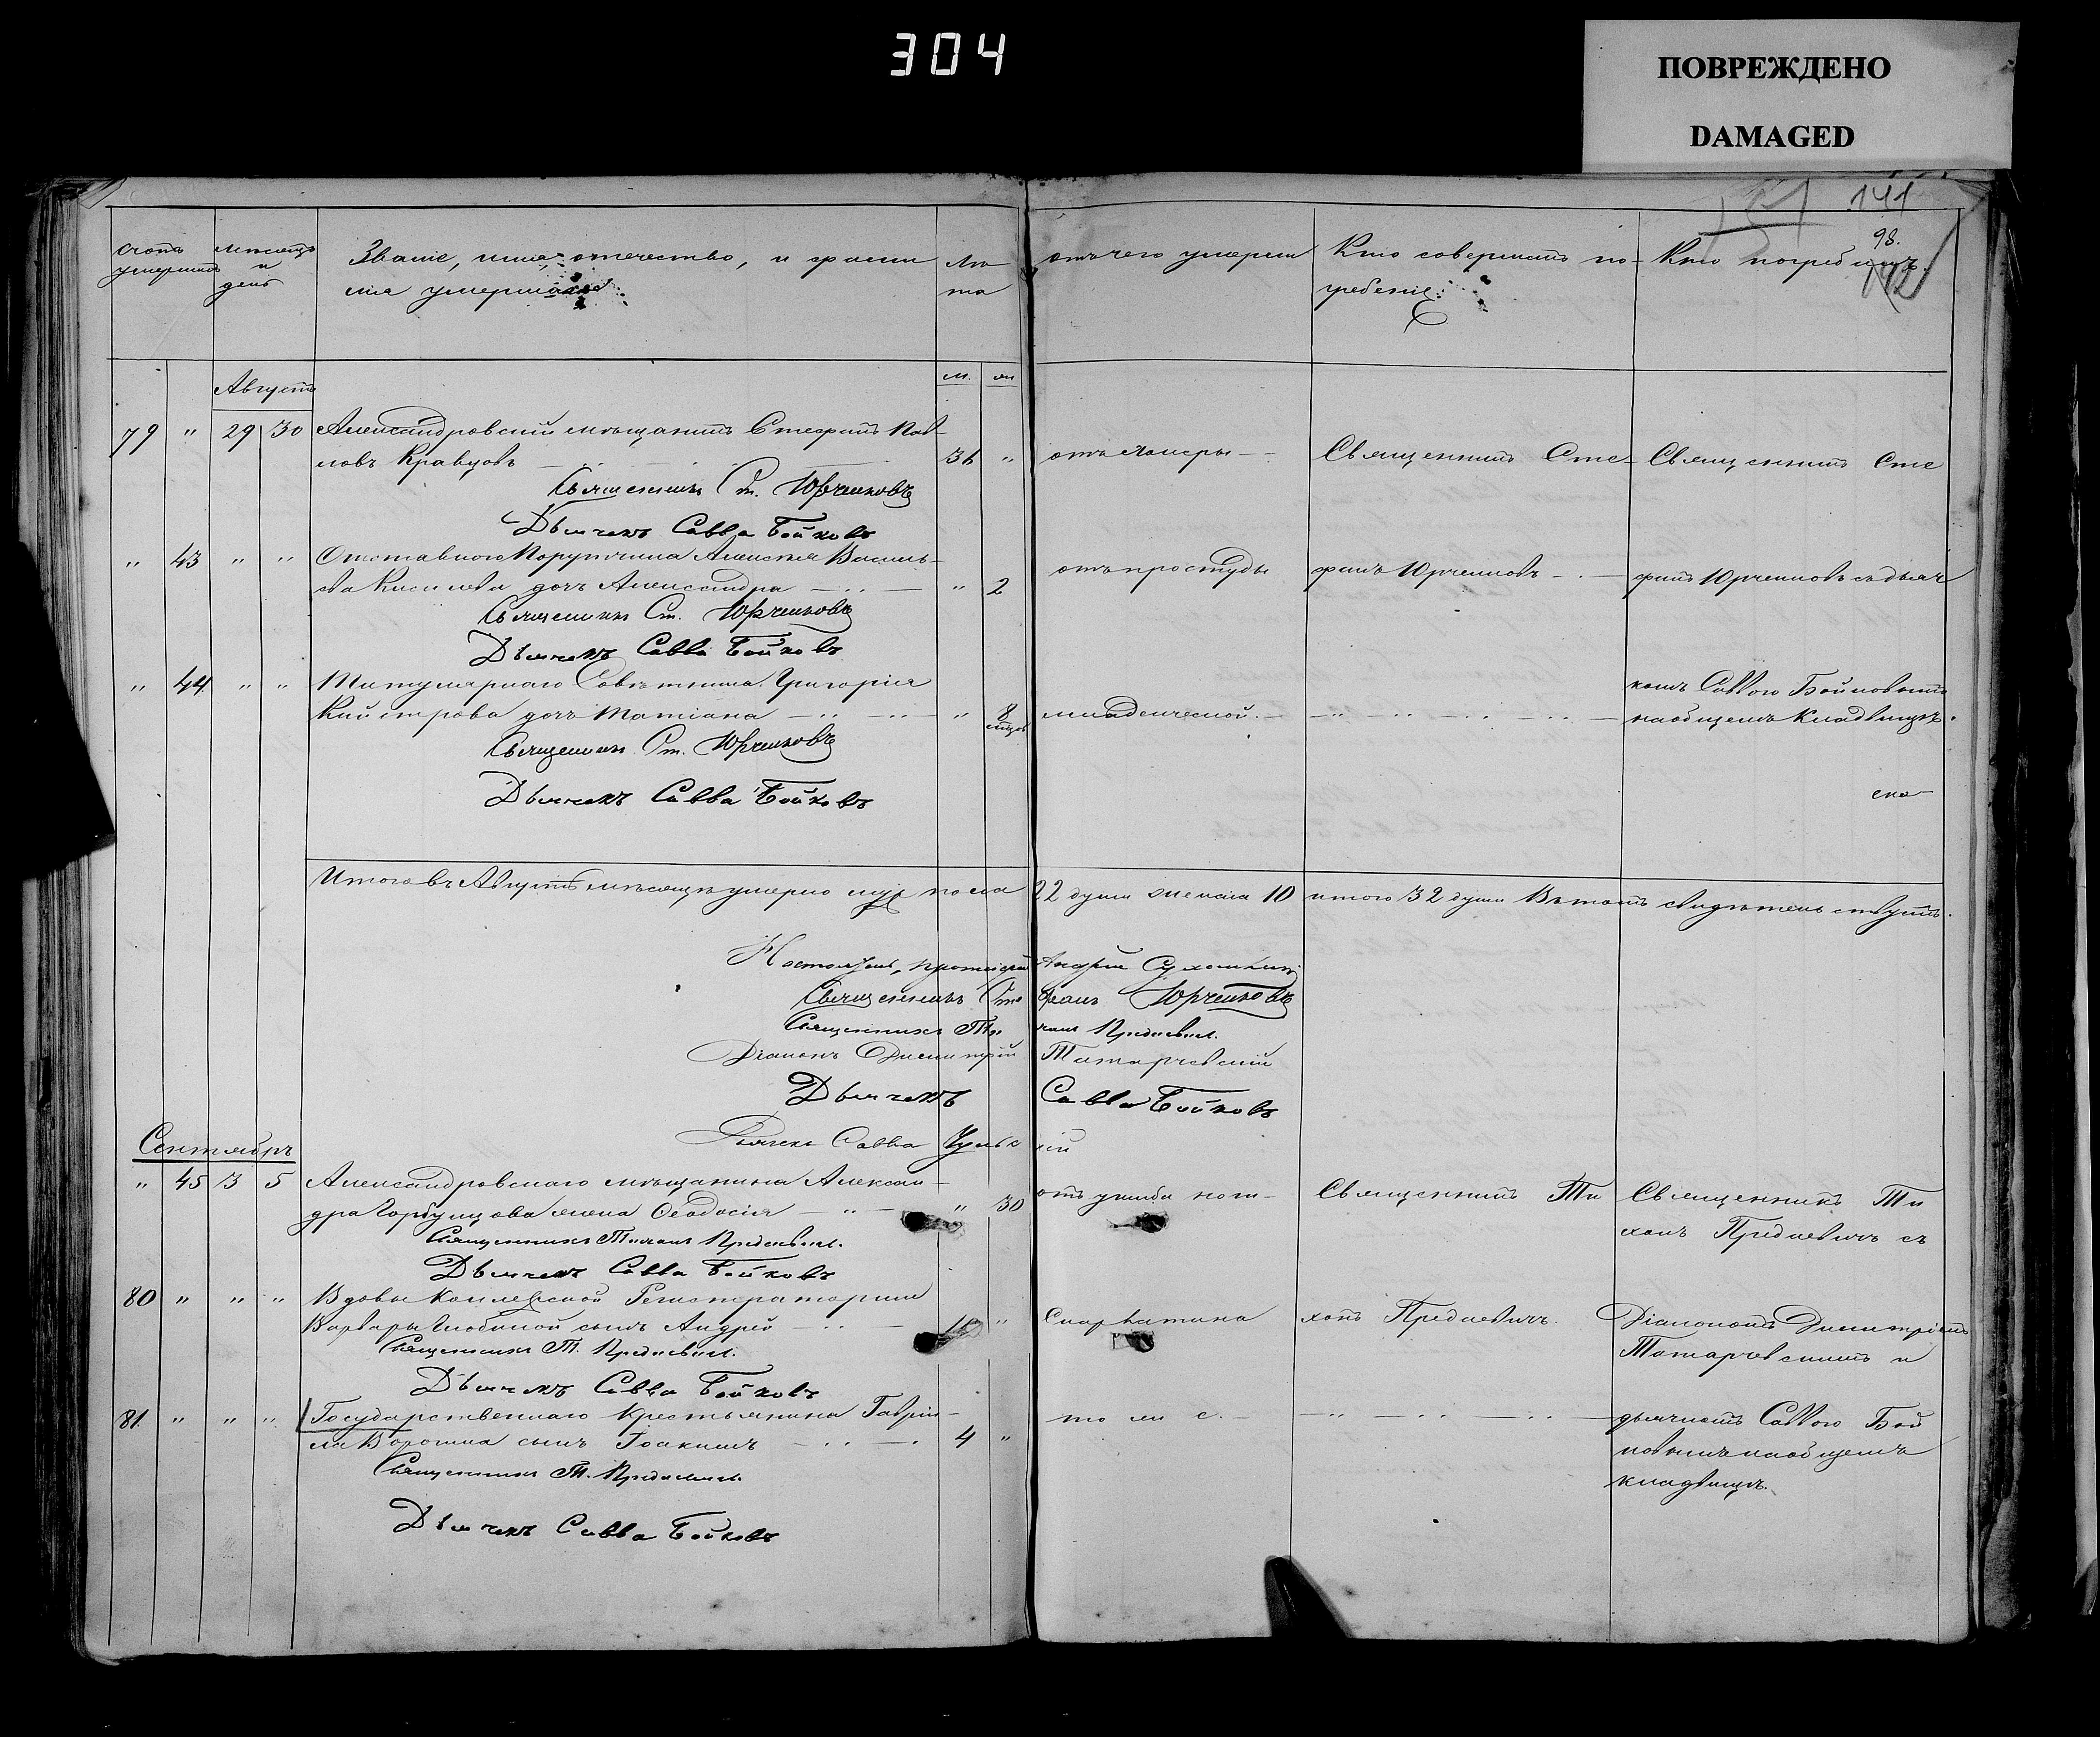 304
ПОВРЕЖДЕНО
DAMAGED
141
98.
142
Счетъ умершихъ
мѣсяцъ и день
Званіе, имя, отечество, и фами
лія умершихъ
Лѣ
та
отъ чего умерли
Кто совершалъ по-
гребеніе
Кто погребалъ
Августъ
м.
79 " 29 30 Александровскій мѣщанинъ Стефанъ Пав-
ловъ Кравцовъ 36 " отъ холеры Священникъ Сте- Священникъ Сте
Священникъ Ст. Юрченковъ
Дьячекъ Савва Бойковъ
" 43 " " Отставного Поручика Алексѣя Василь-
ева Киселева дочь Александра " 2 отъ простуды фанъ Юрченковъ фанъ Юрченковъ съ дьяч
Священникъ Ст. Юрченковъ
Дьячекъ Савва Бойковъ
" 44 " " Титулярнаго Совѣтника Григорія
комъ Саввою Бойковымъ
дочь Татіана " 8 младенческой на общемъ кладбищѣ.
Священникъ Ст. Юрченковъ
Дьячекъ Савва Бойковъ
Итого въ Августѣ мѣсяцѣ умерло муж пола 22 души женска 10 итого 32 души Въ томъ свидѣтельствуютъ.
Настоятель, протоіерей Андрей
Священникъ Стефанъ Юрченковъ
Священникъ Тихон Предаевич.
Діаконъ Димитрій Татарчевскій
Дьячекъ Савва Бойковъ
Дьячекъ Савва
Сентябрь
" 45 3 5 Александровскаго мѣщанина Алексан-
дра Горбунцова жена Ѳеодосія " 30 отъ ушиба Священникъ Ти Священникъ Ти
хонъ Предаевичъ съ
Священникъ Тихонъ Предаевич.
Дьячекъ Савва Бойковъ
80 " " " Вдовы Коллежской Регистраторши
Варвары сынъ Андрей " Скарлатина хонъ Предаевичъ. Діакономъ Димитріемъ
Священникъ Т. Предаевич.
Татарчевскимъ и
Дьячекъ Савва Бойковъ
81. " " " Государственнаго Крестьянина Гаврі-
ла Ворошка сынъ Іоакимъ 4 " тоже дьячкомъ Саввою Бой
ковымъ на общемъ
Священникъ Т. Предаевич.
кладбищѣ.
Дьячекъ Савва Бойковъ